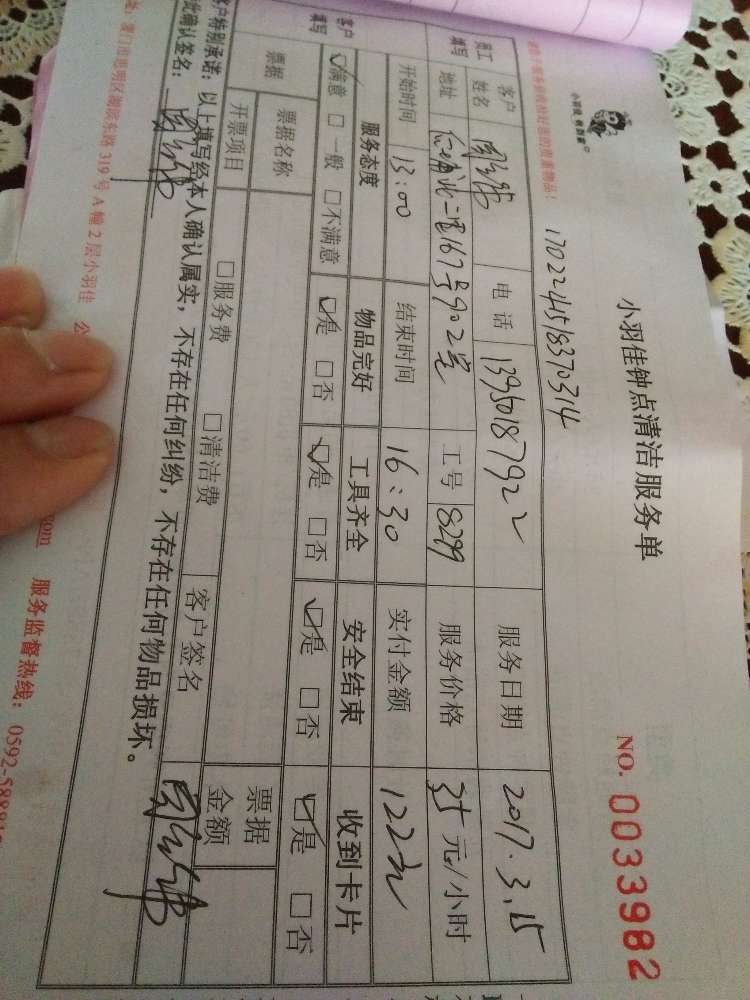 小羽佳钟点清洁服务单
NO. 0033982
小羽佳 有到家
170224518370314
客户姓名 电话 13950187922 服务日期 2017.3.15
员工填写
地址 167号902室 工号 8299 服务价格 35元/小时
开始时间 13:00 结束时间 16:30 实付金额 122元
客户填写
服务态度 物品完好 工具齐全 安全结束 收到卡片
☑满意 □一般 □不满意 ☑是 □否 ☑是 □否 ☑是 □否 ☑是 □否
票据 票据名称 票据金额
开票项目 □服务费 □清洁费 客户签名
客户特别承诺:以上填写经本人确认属实,不存在任何纠纷,不存在任何物品损坏。
此确认签名:
址:厦门市思明区湖滨东路319号A幢2层小羽佳
服务监督热线:0592-5889